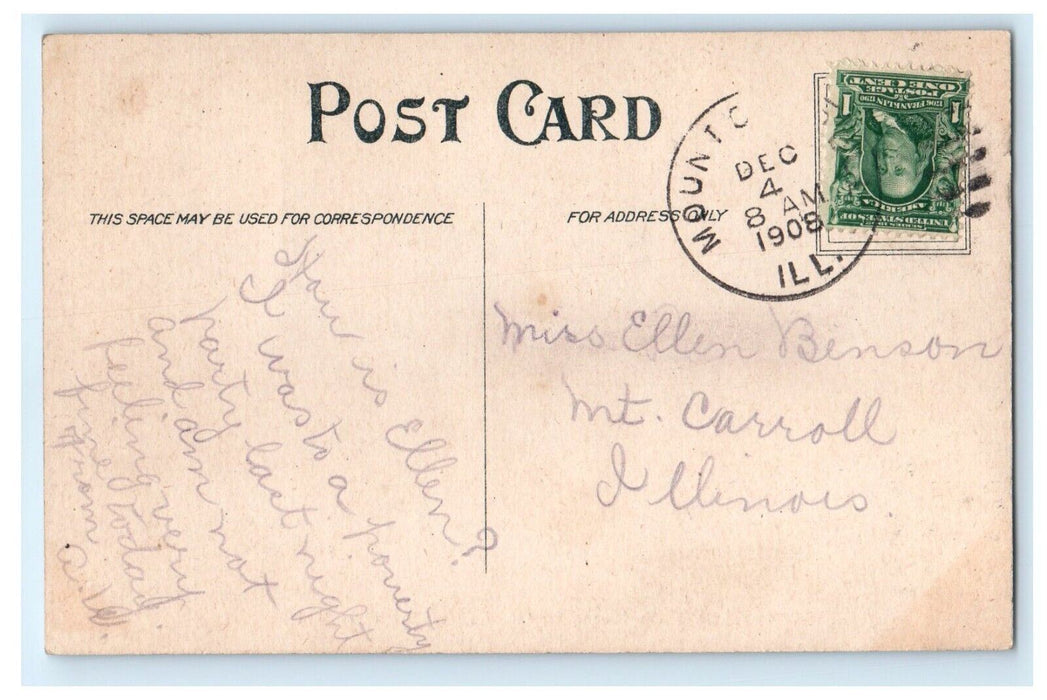 POST CARD
THIS SPACE MAY BE USED FOR CORRESPONDENCE
FOR ADDRESS ONLY
MOUNT C
DEC
4
8 AM
1908
ILL.
SERIES OF 1902
UNITED STATES OF
AMERICA
1706 FRANKLIN 1790
1 1
POSTAGE
ONE CENT
How is Ellen?
I was to a poverty
party last night
and am not
feeling very
fine today.
From
Miss Ellen Benson
Mt. Carroll
Illinois